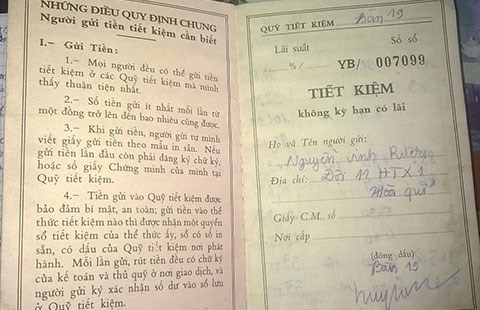 NHỮNG ĐIỀU QUY ĐỊNH CHUNG
Người gửi tiền tiết kiệm cần biết
I.— Gửi Tiền:
1.— Mọi người đều có thể gửi tiền
tiết kiệm ở các Quỹ tiết kiệm mà mình
thấy thuận tiện nhất.
2.— Số tiền gửi ít nhất mỗi lần từ
một đồng trở lên đến bao nhiêu cũng được.
3.— Khi gửi tiền, người gửi tự mình
viết giấy gửi tiền theo mẫu in sẵn. Nếu
gửi tiền lần đầu còn phải đăng ký chữ ký,
hoặc số giấy Chứng minh của mình tại
Quỹ tiết kiệm.
4.— Tiền gửi vào Quỹ tiết kiệm được
bảo đảm bí mật, an toàn; gửi tiền vào thể
thức tiết kiệm nào thì được nhận một quyển
sổ tiết kiệm của thể thức ấy, sổ có số in
sẵn, có dấu của Quỹ tiết kiệm nơi phát
hành. Mỗi lần gửi, rút tiền đều có chữ ký
của kế toán và thủ quỹ ở nơi giao dịch, và
người gửi ký xác nhận số dư vào sổ lưu
ở Quỹ tiết kiệm.
QUỸ TIẾT KIỆM Bàn 19
Lãi suất Số sổ
%/ YB/ 007099
TIẾT KIỆM
không kỳ hạn có lãi
Họ và Tên người gửi:
Nguyễn Vinh
Địa chỉ: Đội 11 HTX1
Hòa quí
Giấy C.M. số
Nơi cấp
(đóng dấu)
Bàn 19